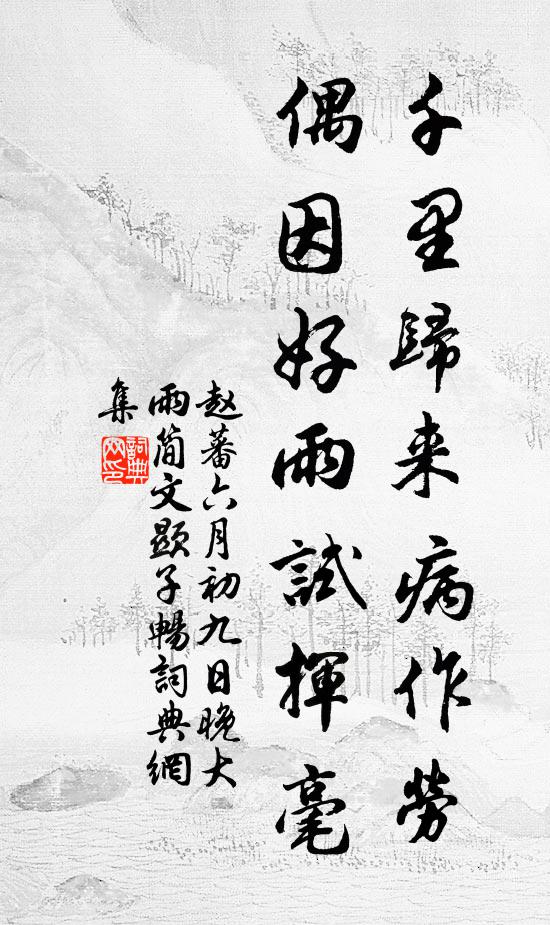 千里歸来病作勞
偶因好雨試揮毫
赵蕃六月初九日晚大
雨简文顯子暢詞典網
集
詞典
网印